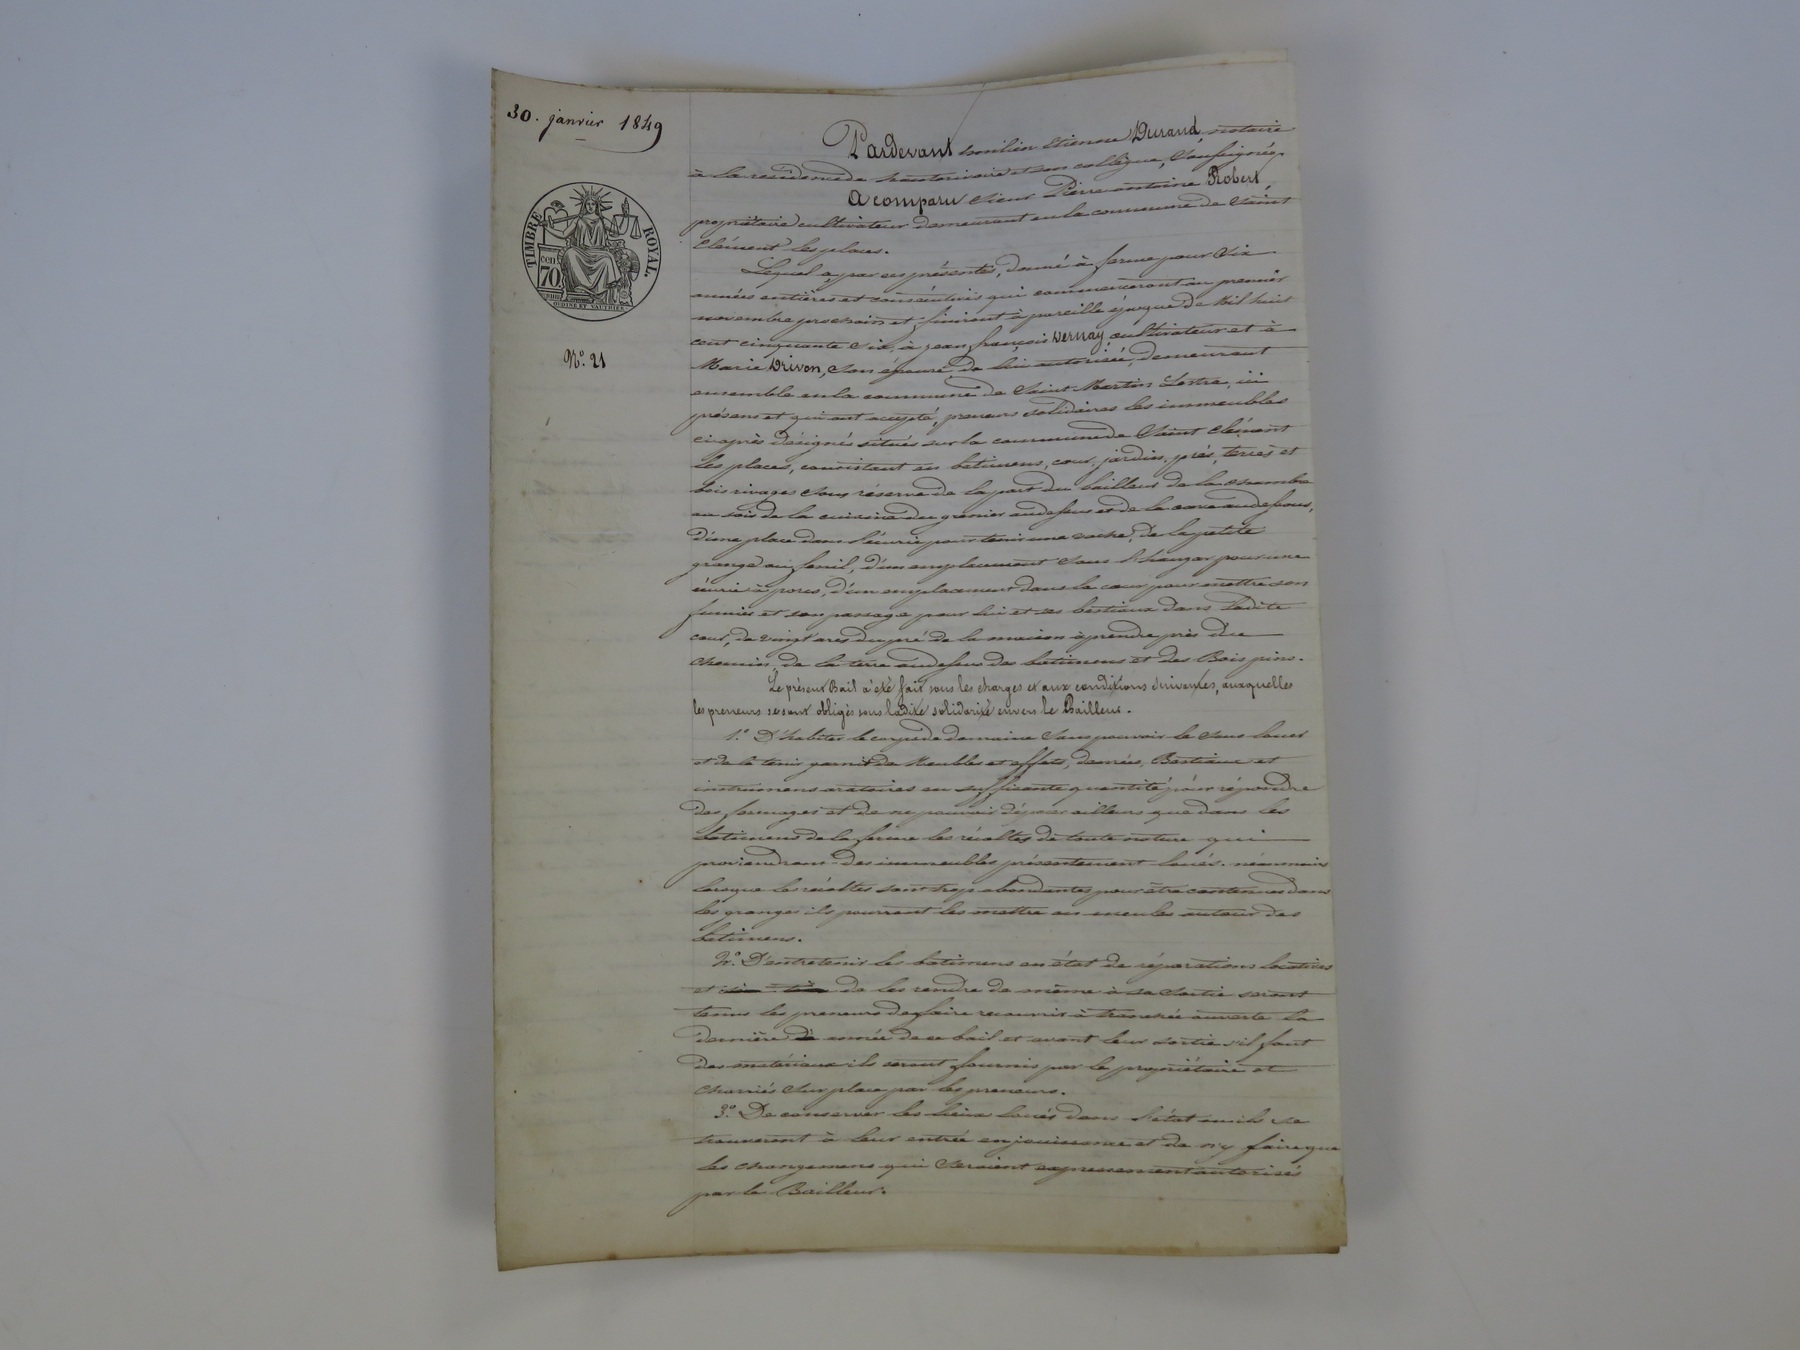 30. janvier 1849
TIMBRE ROYAL.
cen
70
OUDINÉ ET VAUTHIER
N.° 21
Pardevant Etienne Durand, notaire
à la résidence de et son collègue, soussignés,
A comparu Sieur Pierre antoine Robert,
propriétaire cultivateur demeurant en la commune de Saint
Clément les places.
Lequel a, par ces présentes, donné à ferme pour six
années entières et consécutives qui commenceront au premier
novembre prochain et finiront à pareille époque de Mil huit
cent cinquante six, à jean françois Vernay, cultivateur et à
Marie Drivon, son épouse, de lui autorisée, demeurant
ensemble en la commune de Saint Martin Lestra, ici
présens et qui ont accepté, preneurs solidaires les immeubles
ciaprès désignés situés sur la commune de Saint Clément
les places, consistant en batimens, cour, jardin, prés, terres et
bois rivages sous réserve de la part du bailleur de la chambre
au sois de la cuisine du grenier audessus et de la cave audessous,
d'une place dans l'écurie pour tenir une vache, de la petite
grange au fenil, d'un emplacement sous l'hangar pour une
écurie à porcs, d'un emplacement dans la cour pour mettre son
fumier et son passage pour lui et ses bestiaux dans ladite
cour, de vingt ares du pré de la maison à prendre près du
chemin, de la terre audessus des batimens et des Bois pins.
Le présent Bail a été fait sous les charges et aux conditions suivantes, auxquelles
les preneurs se sont obligés sous ladite solidarité envers le Bailleur.
1.° D'habiter le corps de domaine sans pouvoir le sous louer
et de le tenir garnit de Meubles et effets, denrées, Bestiaux et
instrumens aratoires en suffisante quantité pour répondre
des fermages et de ne pouvoir déposer ailleurs que dans les
batimens de la ferme les récoltes de toute nature qui
proviendront des immeubles présentement loués. néanmoins
lorsque les récoltes sont trop abondantes pour être contenues dans
les granges ils pourront les mettre en meules autour des
batimens.
2.° D'entretenir les batimens en état de réparations locatives
et de les rendre de même à sa Sortie seront
tenus les preneurs de faire recouvrir à tranchée ouverte la
dernière année de ce bail et avant leur sortie s'il faut
des matériaux ils seront fournis par le propriétaire et
charriés sur place par les preneurs.
3.° De conserver les lieux loués dans l'état où ils se
trouveront à leur entrée en jouissance et de n'y faire que
les changemens qui seraient expressément autorisés
par le Bailleur.